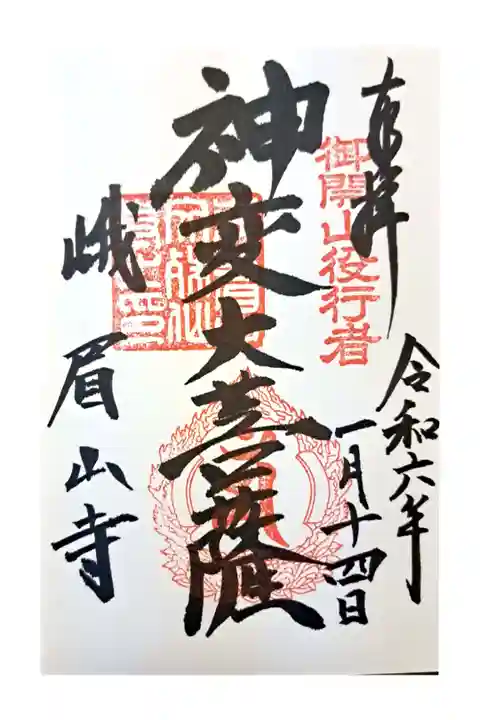 奉拝
御開山役行者
令和六年
一月十四日
神変大菩薩
峨眉山寺